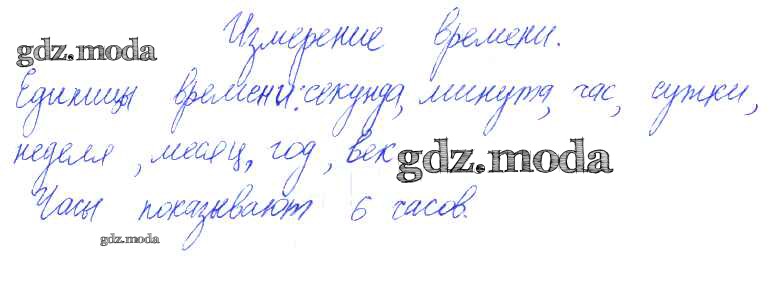 Измерение времени.
gdz.moda
Единицы времени: секунда, минута, час, сутки,
неделя, месяц, год, век
gdz.moda
Часы показывают 6 часов.
gdz.moda